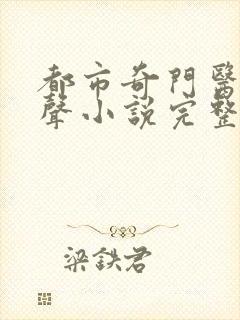 都市奇門醫
聲小說完整
梁鉄君